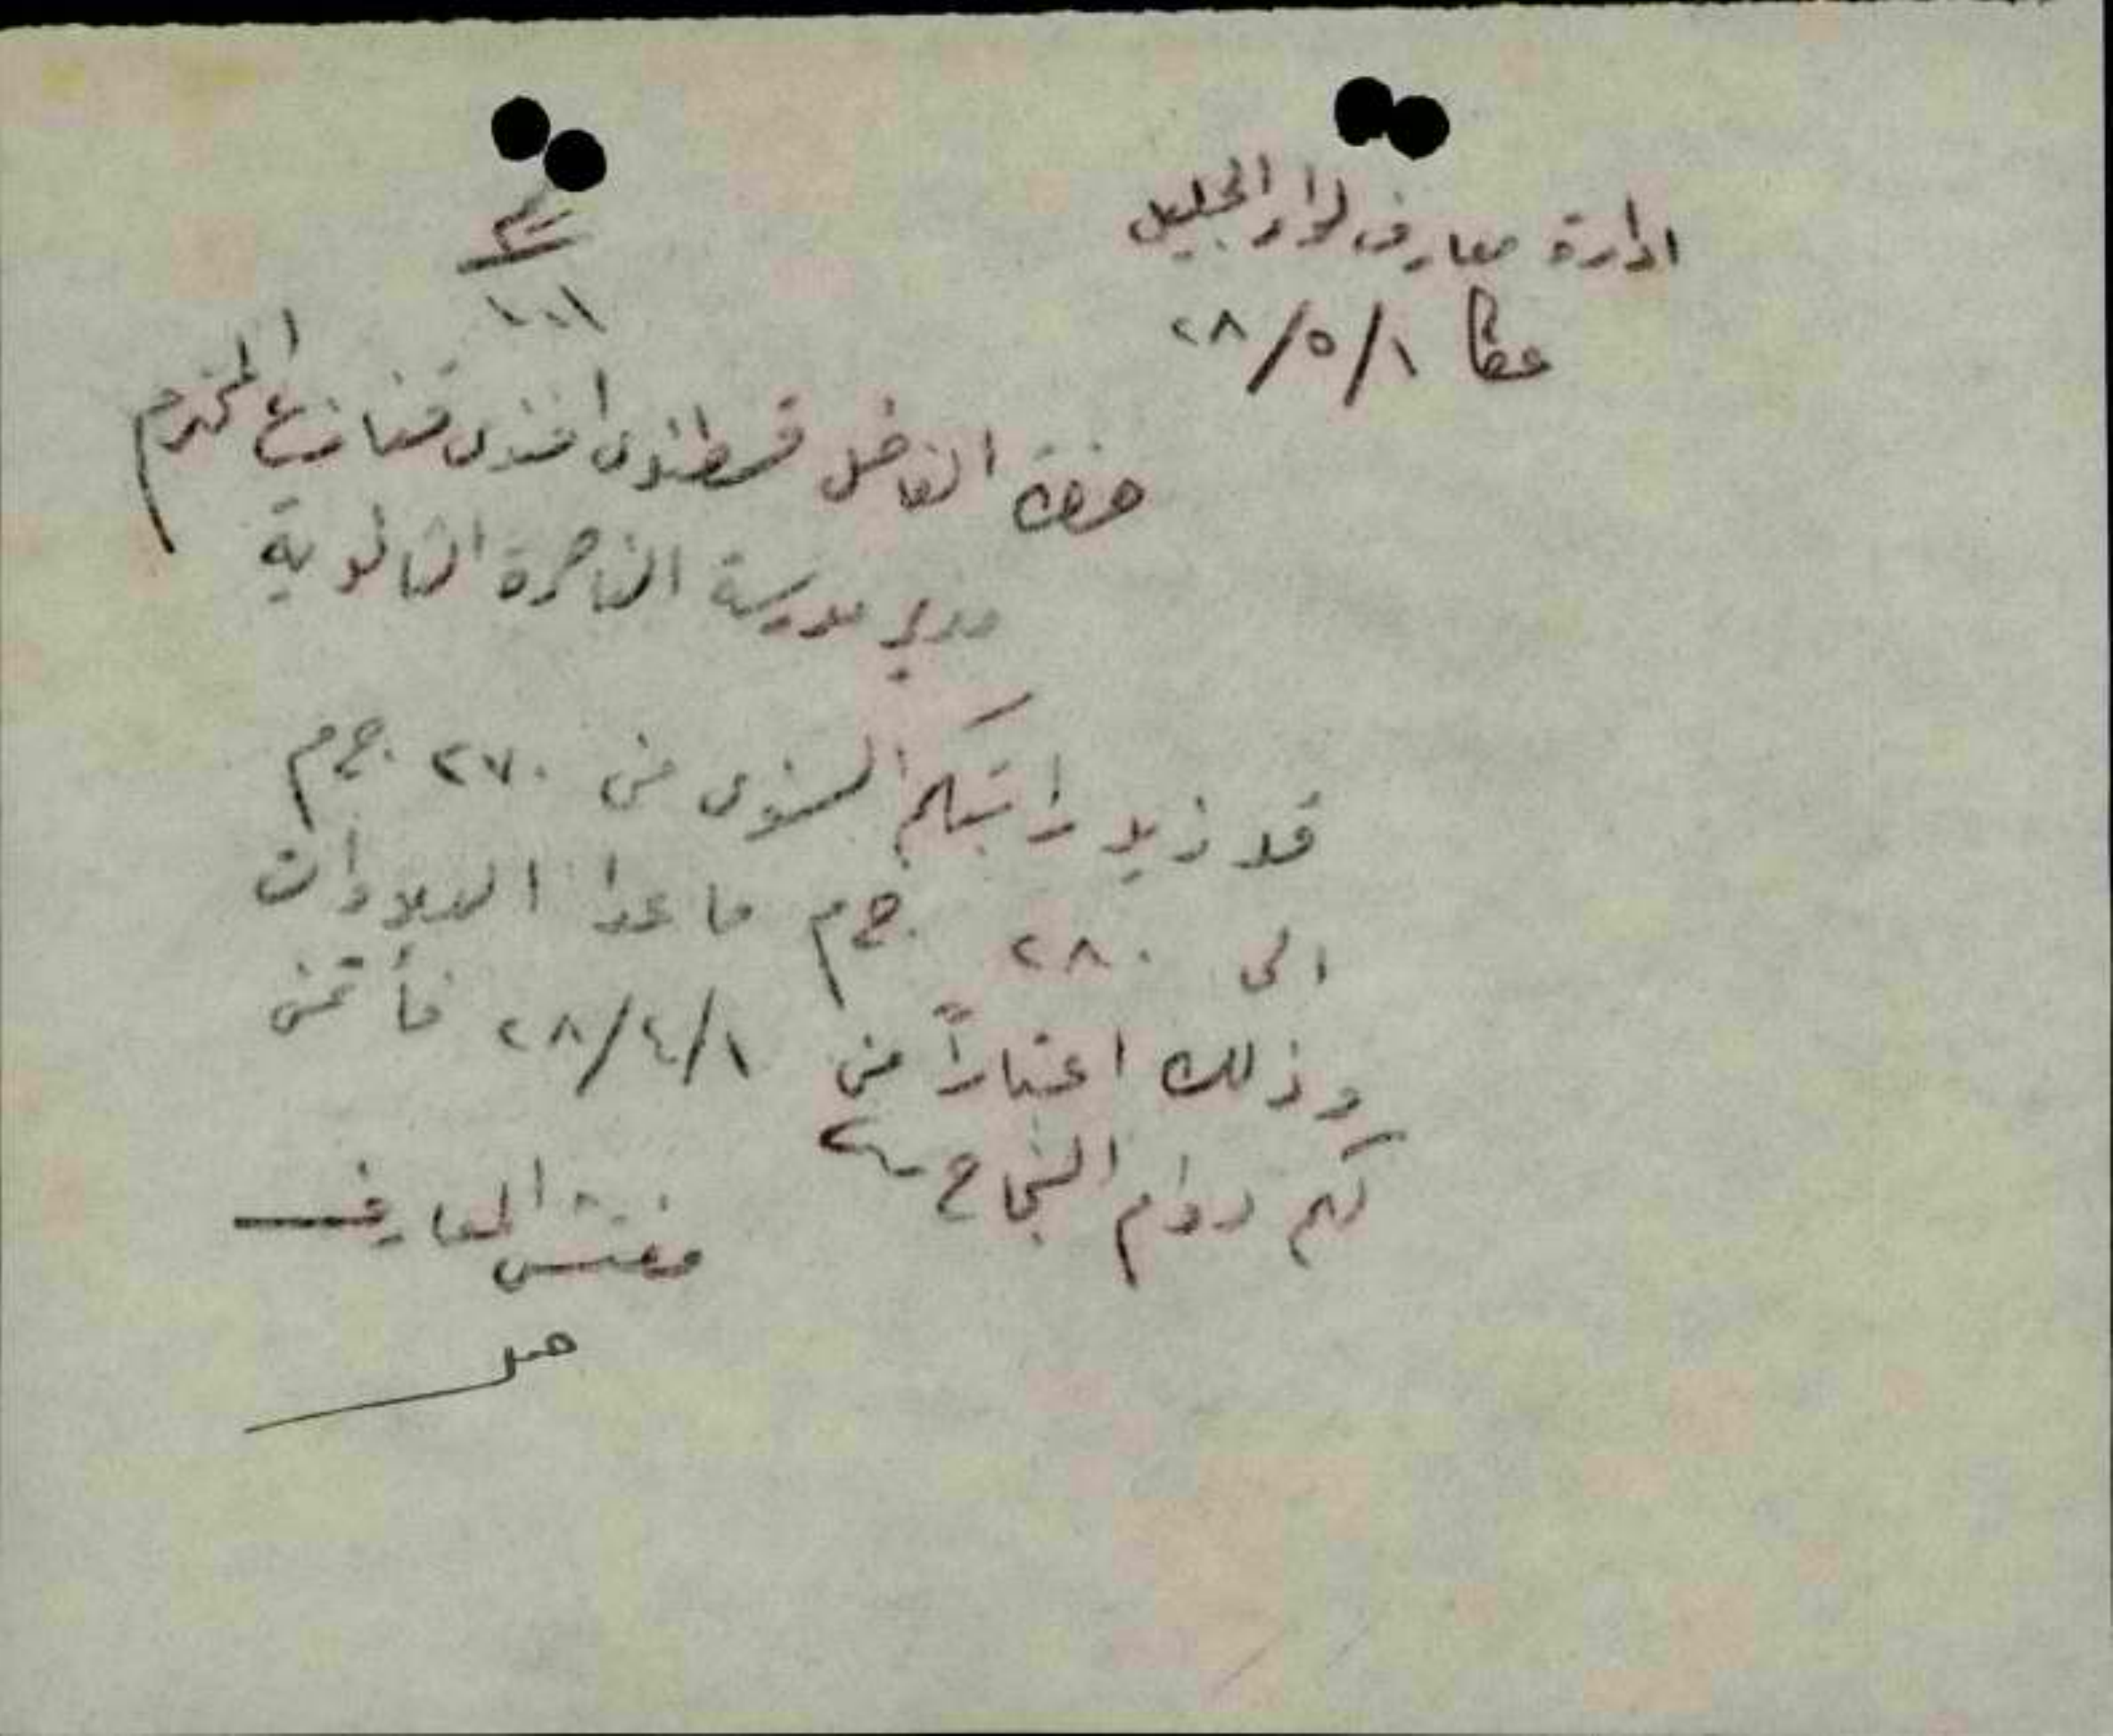 ادارة معارف لواء الجليل
عكا ٢٨/٥/١
١٠٠١
حضرة الفاضل قسطندى افندى قنازع المحترم
مدير مدرسة الناصرة الثانوية
قد زيد راتبكم السنوى من ٢٧٠ ج٠م
الى ٢٨٠ ج٠م ما عدا العلاوات
وذلك اعتباراً من ٢٨/٤/١ فأتمنى
لكم دوام النجاح
مفتش المعارف